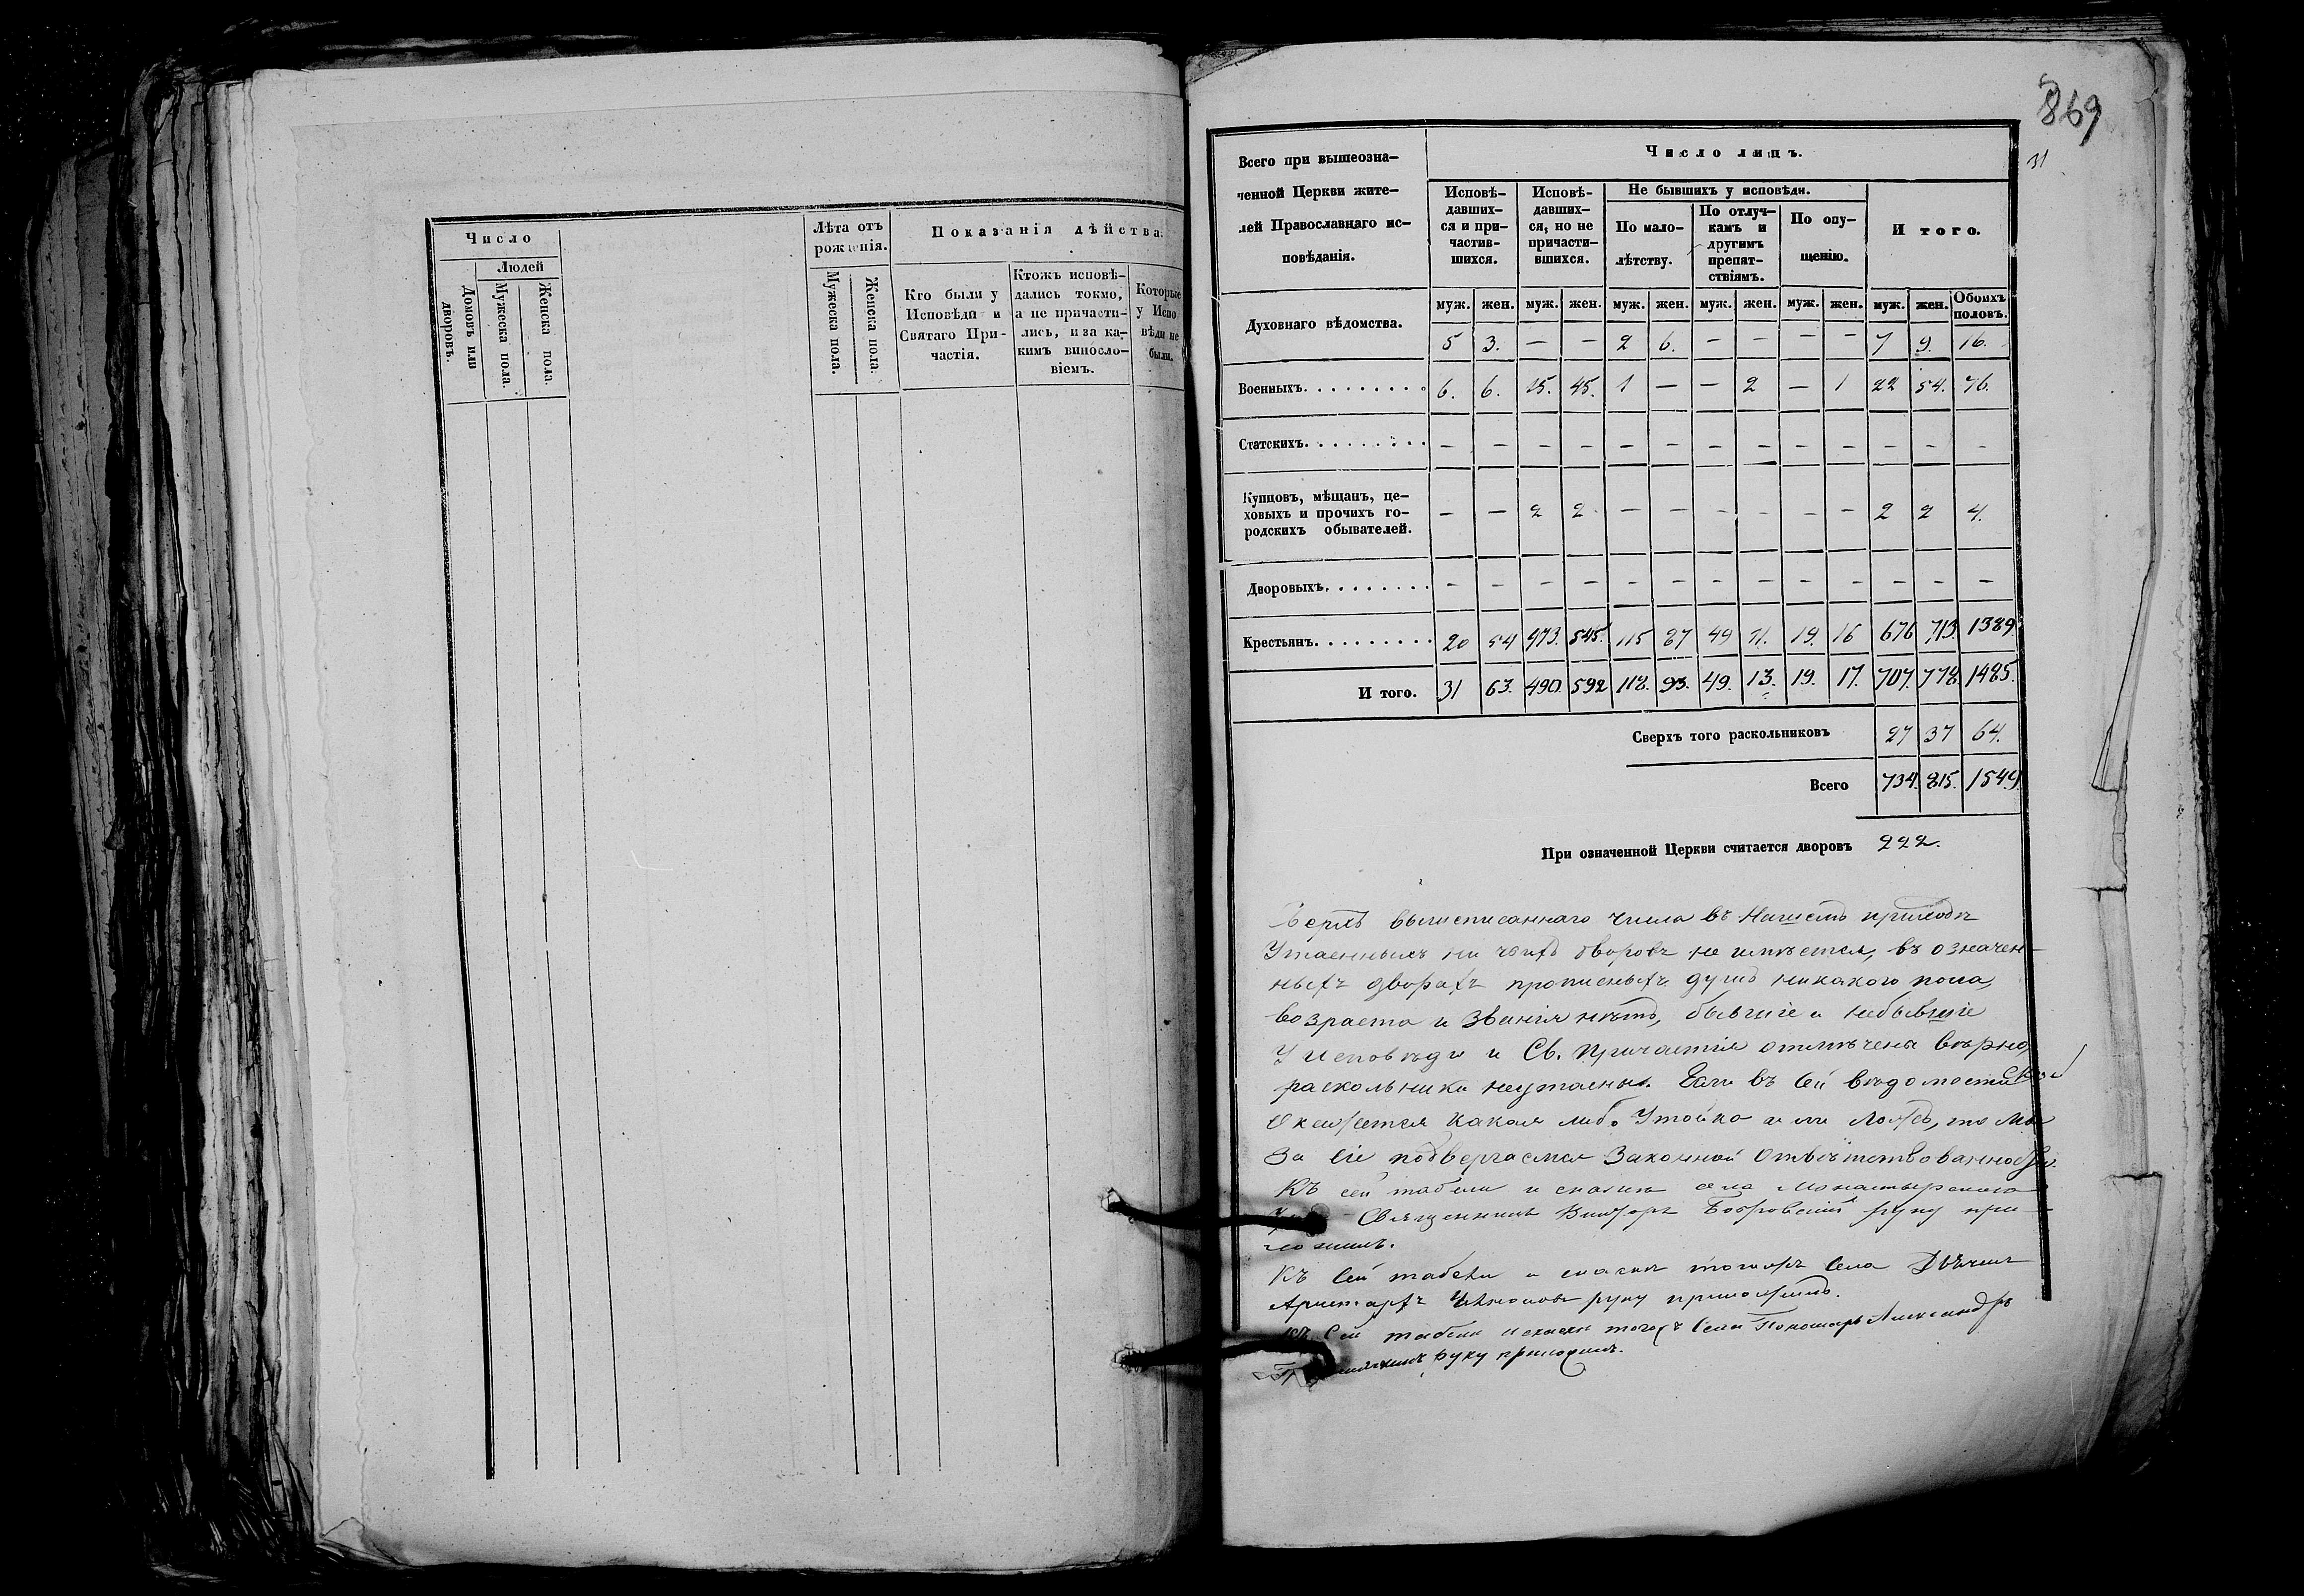 Число
Людей
Домовъ или дворовъ.
Мужеска пола.
Женска пола.
Лѣта отъ рожденія.
Мужеска пола.
Женска пола.
Показанія дѣйства.
Кто были у Исповѣди и Святаго Причастія.
Ктожъ исповѣ-
дались токмо,
а не причасти-
лись, и за ка-
кимъ виносло-
віемъ.
Которые
у Испо
вѣди не
были.
869
31
Всего при вышеозна-
ченной Церкви жите-
лей Православнаго ис-
повѣданія.
Число лицъ.
Исповѣ-
давших-
ся и при-
частив-
шихся.
Исповѣ-
давших-
ся, но не
причасти-
вшихся.
Не бывшихъ у исповѣди.
По мало-
лѣтству.
По отлуч-
камъ и
другимъ
препят-
ствіямъ.
По опу-
щенію.
И того.
муж. жен. муж. жен. муж. жен. муж. жен. муж. жен. муж. жен. Обоихъ половъ.
Духовнаго вѣдомства. 5 3. — — 2 6. — — — — 7 9. 16.
Военныхъ. 6. 6. 15. 45. 1 — — 2 — 1 22 54. 76.
Статскихъ. — — — — — — — — — — — — —
Купцовъ, мѣщанъ, це-
ховыхъ и прочихъ го-
родскихъ обывателей. — — 2 2 — — — — — — 2 2 4.
Дворовыхъ. — — — — — — — — — — — — —
Крестьянъ. 20 54 473. 545. 115 87 49 11. 19. 16 676 713 1389
И того. 31 63. 490. 592 118. 93. 49. 13. 19. 17. 707. 778. 1485.
Сверхъ того раскольниковъ 27 37 64.
Всего 734. 815. 1549.
При означенной Церкви считается дворовъ 222.
Сверхъ вышеписаннаго числа въ нашемъ приходѣ
утаенныхъ ни чьихъ дворовъ не имѣется, въ означен-
ныхъ дворахъ прописныхъ душъ никакого пола,
возраста и званія нѣтъ, бывшіе и небывшіе
у исповѣди и Св. Причастія отмѣчены вѣрно,
раскольники неутаены. Если въ сей вѣдомости
окажется какая либо утайка или ложь, то мы
за сіе подвергаемся законной отвѣтствованности.
Къ сей табели и сказкѣ села Монастырскаго
Священникъ Викторъ Бобровскій руку при-
ложилъ.
Къ сей табели и сказкѣ тогожъ села Дьячекъ
Аристархъ руку приложилъ.
Къ сей табели и сказкѣ тогожъ села Пономарь Александръ
руку приложилъ.